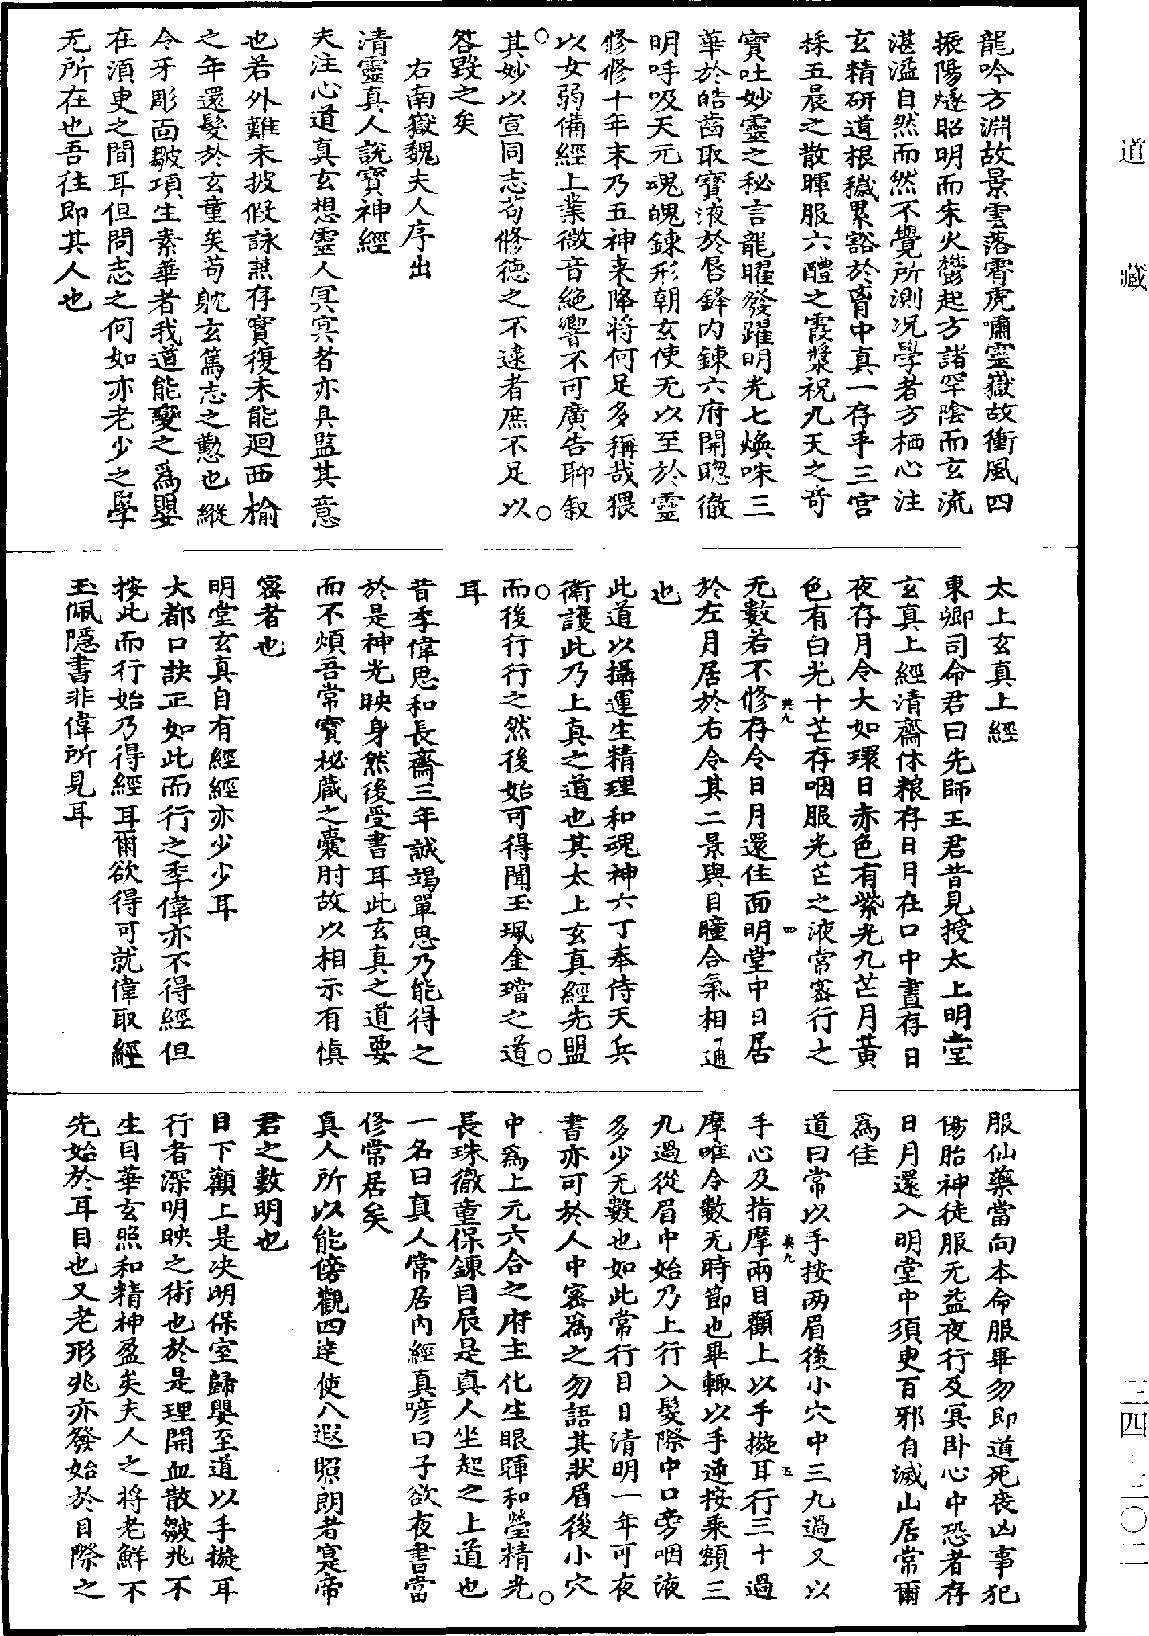 道藏
龍吟方淵故景雲落霄虎嘯靈嶽故衝風四
振陽燧昭明而朱火鬱起方諸罕陰而玄流
湛溢自然而然不覺所測況學者方栖心注
玄精研道根穢累豁於胷中真一存乎三宮
採五晨之散暉服六醴之霞漿祝九天之奇
寶吐妙靈之秘言龍曜發躍明光七煥味三
華於皓齒取寶液於唇鋒內鍊六府開聰徹
明呼吸天元魂魄鍊形朝玄使无以至於靈
修修十年末乃五神来降將何足多稱哉猥
以女弱備經上業微音絶響不可廣告聊叙
其妙以宣同志苟修德之不逮者庶不足以
咎毀之矣
右南嶽魏夫人序出
清靈真人說寶神經
夫注心道真玄想靈人冥冥者亦具監其意
也若外難未披假詠兼存實復未能迴西榆
之年還髮於玄童矣苟躭玄篤志之懃也縱
令牙彫面皺項生素華者我道能變之爲嬰
在湏臾之間耳但問志之何如亦老少之學
无所在也吾往即其人也
太上玄真上經
東卿司命君曰先師王君昔見授太上明堂
玄真上經清齋休粮存日月在口中晝存日
夜存月令大如環日赤色有紫光九芒月黄
色有白光十芒存咽服光芒之液常密行之
无數若不修存令日月還住面明堂中日居
於左月居於右令其二景與目瞳合氣相通
也
此道以攝運生精理和魂神六丁奉侍天兵
衛護此乃上真之道也其太上玄真經先盟
而後行行之然後始可得聞玉珮金璫之道
耳
昔季偉思和長齋三年誠竭單思乃能得之
於是神光映身然後受書耳此玄真之道要
而不煩吾常寶秘蔵之囊肘故以相示有慎
密者也
明堂玄真自有經經亦少少耳
大都口訣正如此而行之季偉亦不得經但
按此而行始乃得經耳爾欲得可就偉取經
玉佩隱書非偉所見耳
服仙藥當向本命服畢勿即道死喪凶事犯
傷胎神徒服无益夜行及冥卧心中恐者存
日月還入明堂中須臾百邪自滅山居常爾
爲佳
道曰常以手按两眉後小穴中三九過又以
手心及指摩兩目顴上以手擬耳行三十過
摩唯令數无時節也畢輒以手逆按乗額三
九過從眉中始乃上行入髮際中口旁咽液
多少无數也如此常行目日清明一年可夜
書亦可於人中密爲之勿語其狀眉後小穴
中爲上元六合之府主化生眼暉和瑩精光
長珠徹童保鍊目辰是真人坐起之上道也
一名曰真人常居内經真諺曰子欲夜書當
修常居矣
真人所以能傍觀四達使八遐照朗者寔帝
君之數明也
目下顴上是决明保室歸嬰至道以手擬耳
行者深明映之術也於是理開血散皺兆不
生目華玄照和精神盈矣夫人之将老鮮不
先始於耳目也又老形兆亦發始於目際之
三四 三〇二